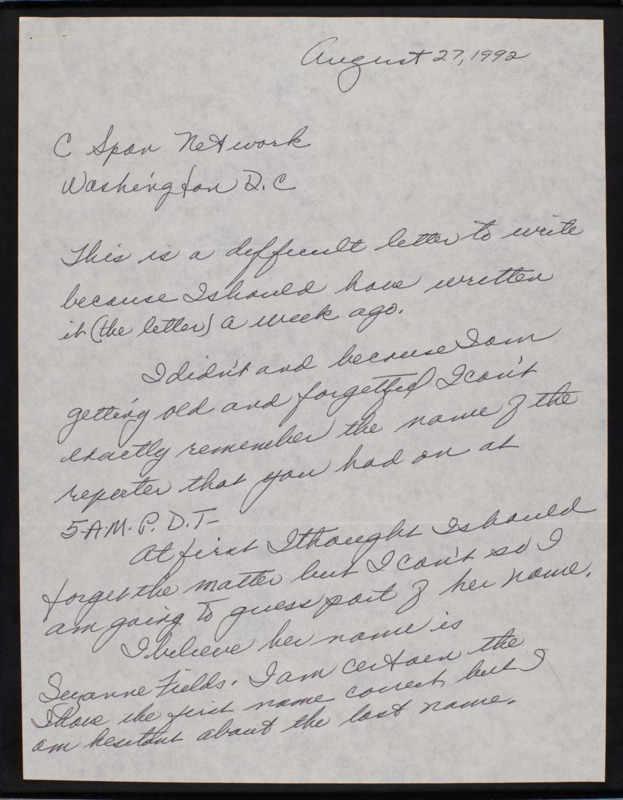 August 27, 1992
C Span Network
Washington D.C
This is a difficult letter to write
because I should have written
it (the letter) a week ago.
I didn't and because I am
getting old and forgetful I can't
exactly remember the name of the
reporter that you had on at
5-A.M. P.D.T-
At first I thought I should
forget the matter but I can't so I
am going to guess part of her name.
I believe her name is
Suzanne Fields. I am certain the
I have the first name correct but I
am hesitant about the last name.